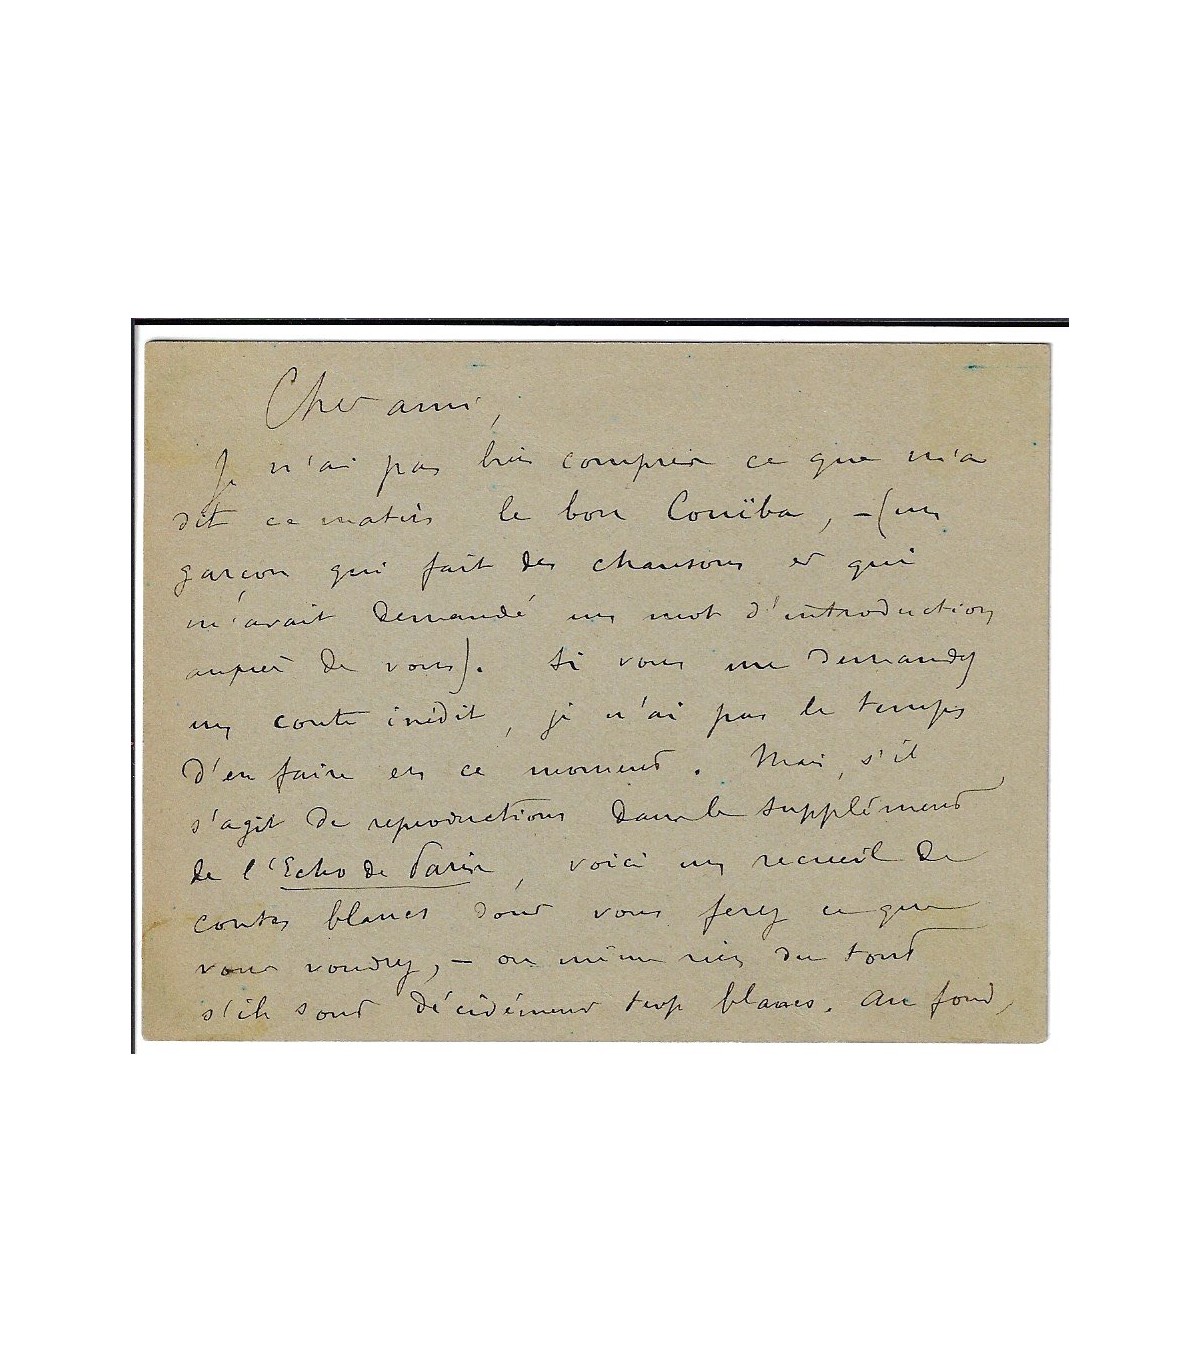 Cher ami,
Je n'ai pas bien compris ce que m'a
dit ce matin le bon Couïba, – (un
garçon qui fait des chansons et qui
m'avait demandé un mot d'introduction
auprès de vous). Si vous me demandez
un conte inédit, je n'ai pas le temps
d'en faire en ce moment. Mais, s'il
s'agit de reproductions dans le supplément
de l'Echo de Paris, voici un recueil de
contes blancs dont vous ferez ce que
vous voudrez, – ou même rien du tout
s'ils sont décidément trop blancs. Au fond,